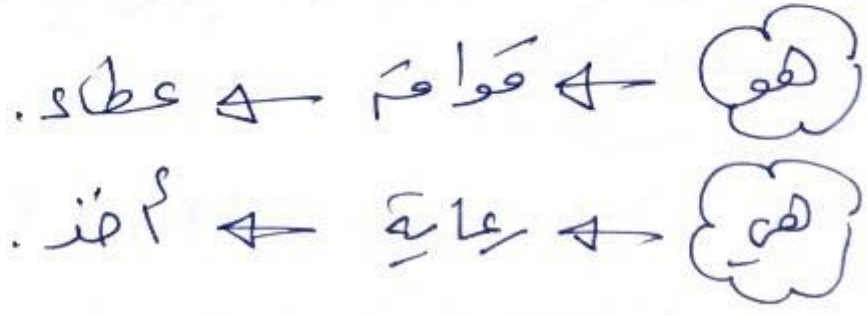 هو ← قوامة ← عطاء.
هي ← رعاية ← أخذ.